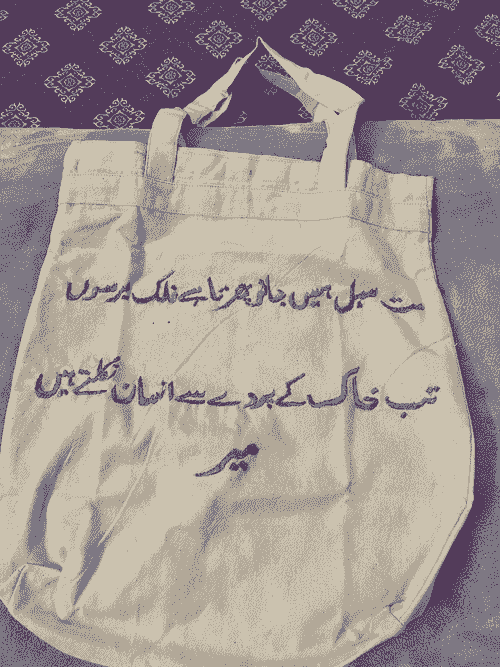 مت سہل ہمیں جانو پھرتا ہے فلک برسوں
تب خاک کے پردے سے انسان نکلتے ہیں
میر